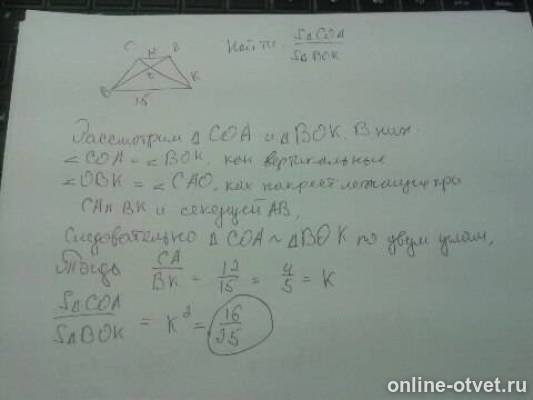 Найти SΔCOA
SΔBOK
C
B
K
15
Рассмотрим Δ COA и ΔBOK. В них
∠COA = ∠BOK, как вертикальные
∠OBK = ∠CAO, как накрест лежащие при
CA и BK и секущей AB,
Следовательно Δ COA ~ ΔBOK по двум углам,
Тогда CA/BK = 12/15 = 4/5 = K
SΔCOA/SΔBOK = K² = 16/25
online-otvet.ru